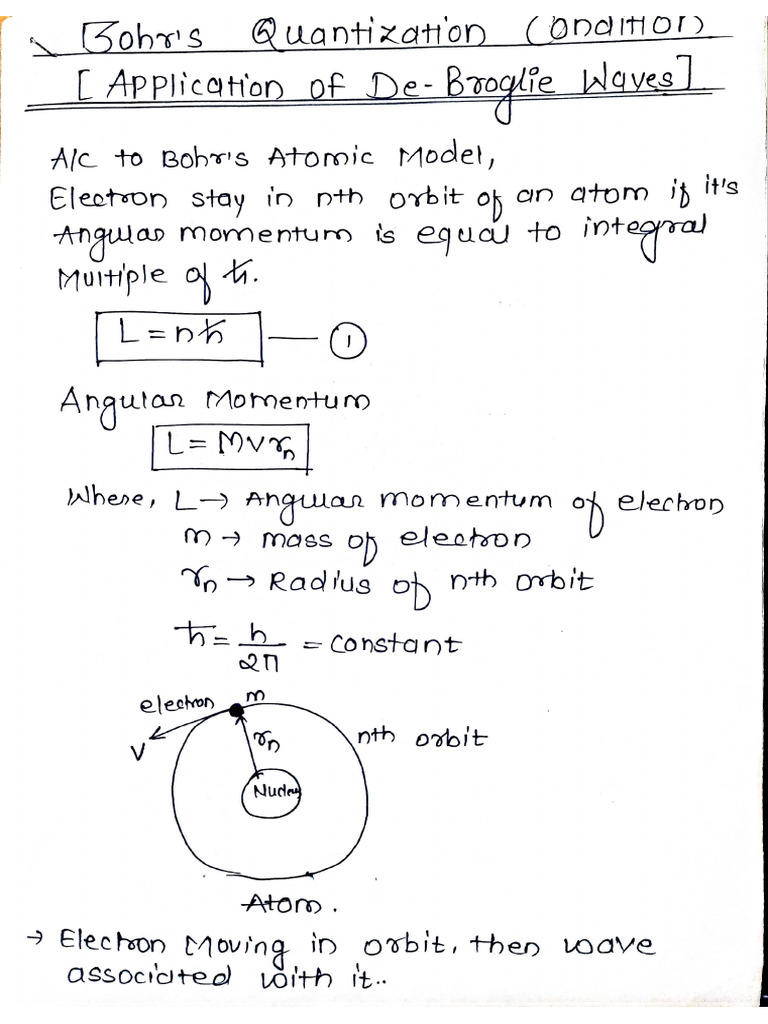 Bohr's Quantization Condition
[Application of De-Broglie Waves]
A/C to Bohr's Atomic Model,
Electron stay in nth orbit of an atom if it's
Angular momentum is equal to integral
Multiple of ħ.
L = nħ — ①
Angular Momentum
L = MVrₙ
Where, L → Angular momentum of electron
m → mass of electron
rₙ → Radius of nth orbit
ħ = h/2π = constant
electron m
V rₙ nth orbit
Nucleus
Atom.
→ Electron Moving in orbit, then wave
associated with it..